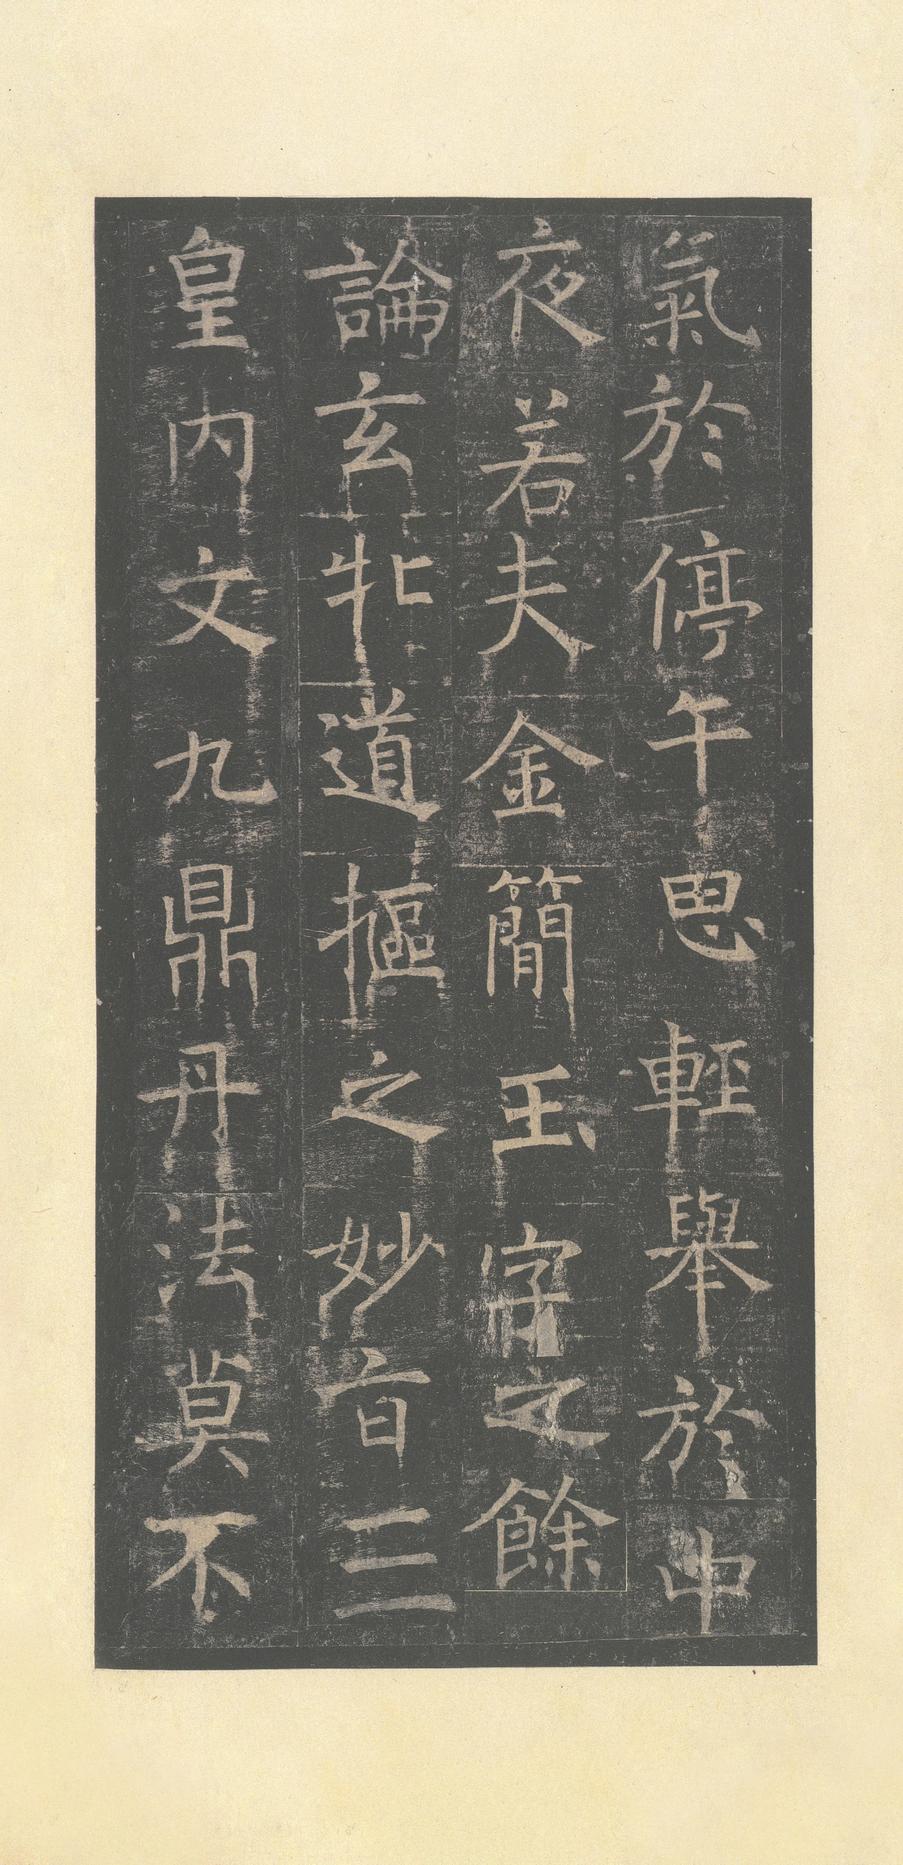 氣於停午思輕舉於中
夜若夫金簡玉字之餘
論玄牝道摳之妙旨三
皇內文九鼎丹法莫不